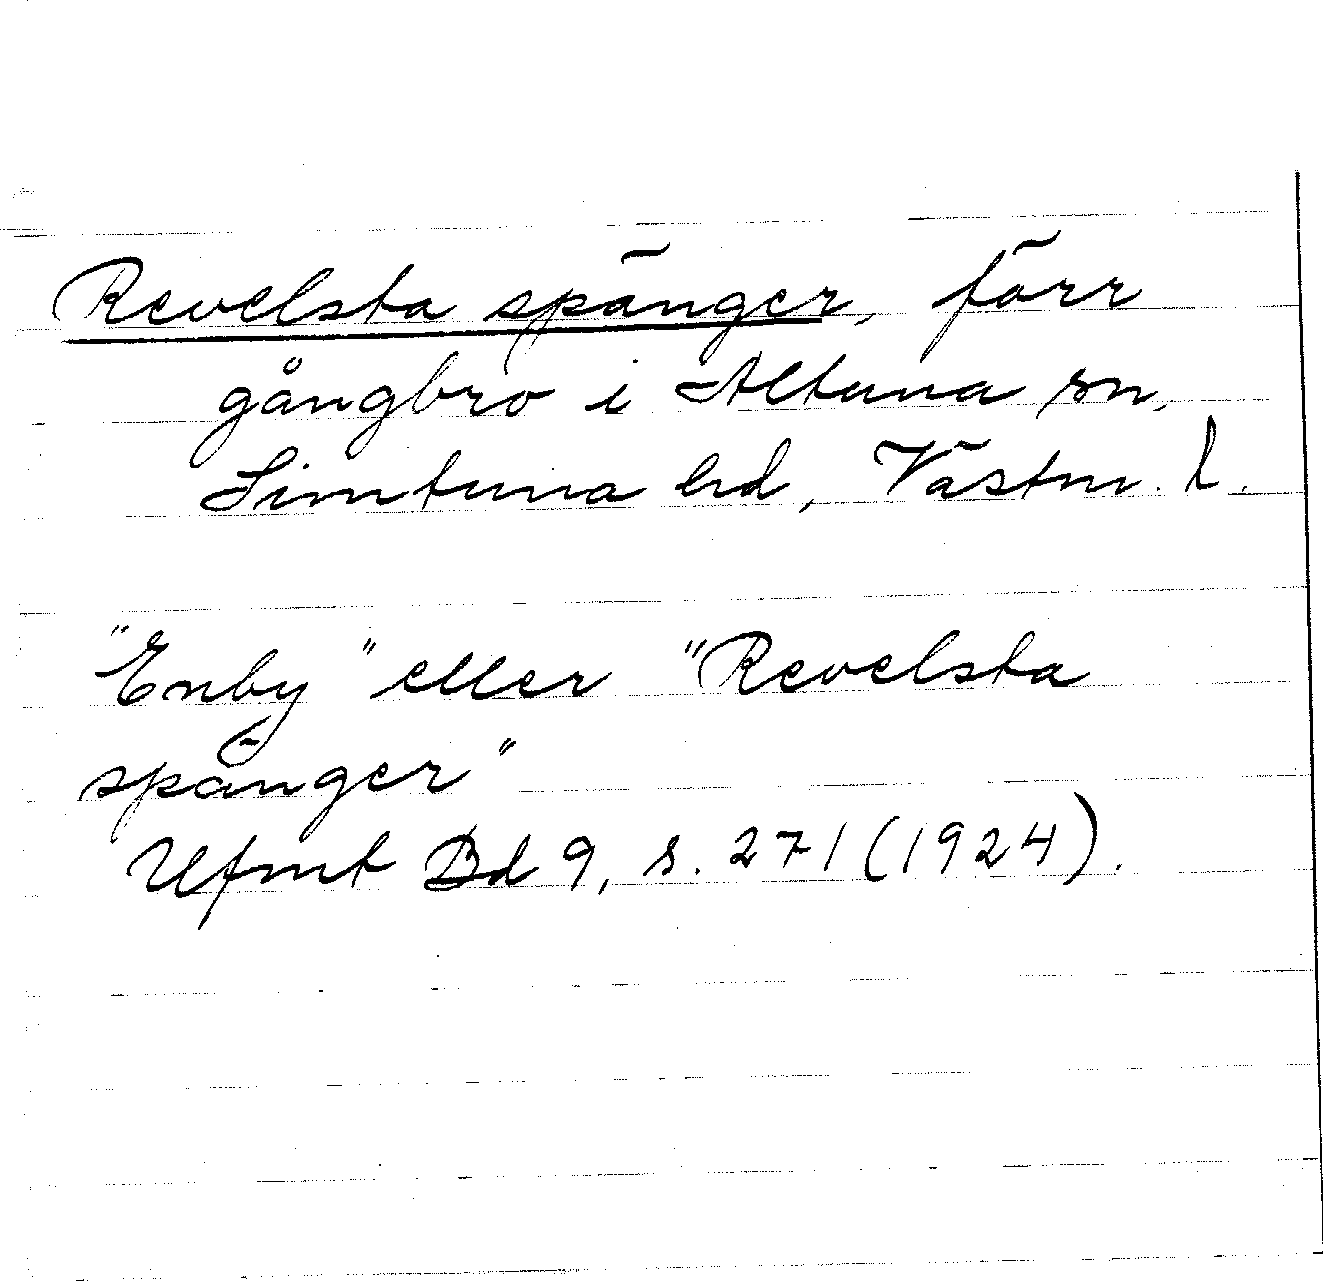 Revelsta spänger, förr
gångbro i Altuna sn,
Simtuna hd, Västm. l.
"Enby" eller "Revelsta
spänger"
Ufmt Bd 9, s. 271 (1924).